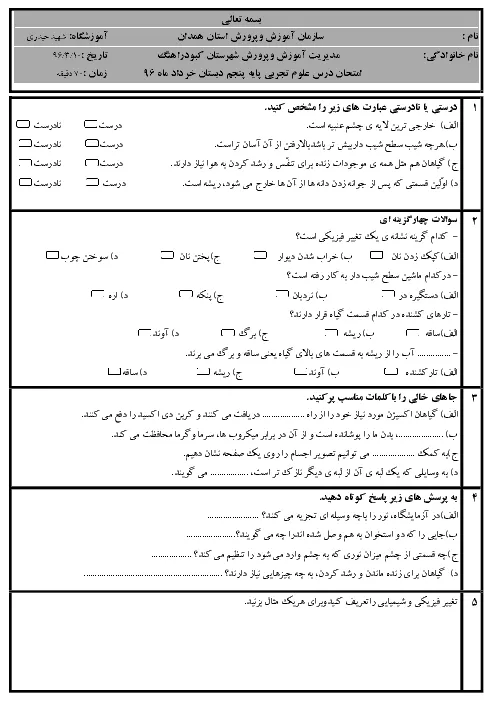 بسمه تعالی
نام : سازمان آموزش و پرورش استان همدان آموزشگاه: شهید حیدری
نام خانوادگی: مدیریت آموزش و پرورش شهرستان کبودراهنگ تاریخ : ۹۶/۳/۱۰
امتحان درس علوم تجربی پایه پنجم دبستان خرداد ماه ۹۶ زمان : ۷۰ دقیقه
۱ درستی یا نادرستی عبارت های زیر را مشخص کنید.
الف) خارجی ترین لایه ی چشم عنبیه است. درست نادرست
ب)هرچه شیب سطح شیب داربیش تر باشدبالارفتن از آن آسان تراست. درست نادرست
ج) گیاهان هم مثل همه ی موجودات زنده برای تنفّس و رشد کردن به هوا نیاز دارند. درست نادرست
د) اوّلین قسمتی که پس از جوانه زدن دانه ها از آن ها خارج می شود، ریشه است. درست نادرست
۲ سوالات چهارگزینه ای
- کدام گزینه نشانه ی یک تغییر فیزیکی است؟
الف)کپک زدن نان ب) خراب شدن دیوار ج)پختن نان د) سوختن چوب
- درکدام ماشین سطح شیب دار به کار رفته است؟
الف) دستگیره در ب) نردبان ج) پنکه د) اره
- تارهای کشنده در کدام قسمت گیاه قرار دارند؟
الف)ساقه ب) ریشه ج) برگ د) آوند
- ............... آب را از ریشه به قسمت های بالای گیاه یعنی ساقه و برگ می برند.
الف) تارکشنده ب) آوند ج) ریشه د)ساقه
۳ جاهای خالی را با کلمات مناسب پرکنید.
الف) گیاهان اکسیژن مورد نیاز خود را از راه .................. دریافت می کنند و کربن دی اکسید را دفع می کنند.
ب) ................... بدن ما را پوشانده است و از آن در برابر میکروب ها، سرما وگرما محافظت می کند.
ج)به کمک .................. می توانیم تصویر اجسام را روی یک صفحه نشان دهیم.
د) به وسایلی که یک لبه ی آن از لبه ی دیگر نازک تر است، ................ می گویند.
۴ به پرسش های زیر پاسخ کوتاه دهید.
الف)در آزمایشگاه، نور را باچه وسیله ای تجزیه می کنند؟ ......................
ب)جایی را که دو استخوان به هم وصل شده اندرا چه می گویند؟.....................
ج)چه قسمتی از چشم میزان نوری که به چشم وارد می شود را تنظیم می کند؟ .................
د) گیاهان برای زنده ماندن و رشد کردن، به چه چیزهایی نیاز دارند؟ ............................................................
۵ تغییر فیزیکی و شیمیایی را تعریف کنیدوبرای هریک مثال بزنید.